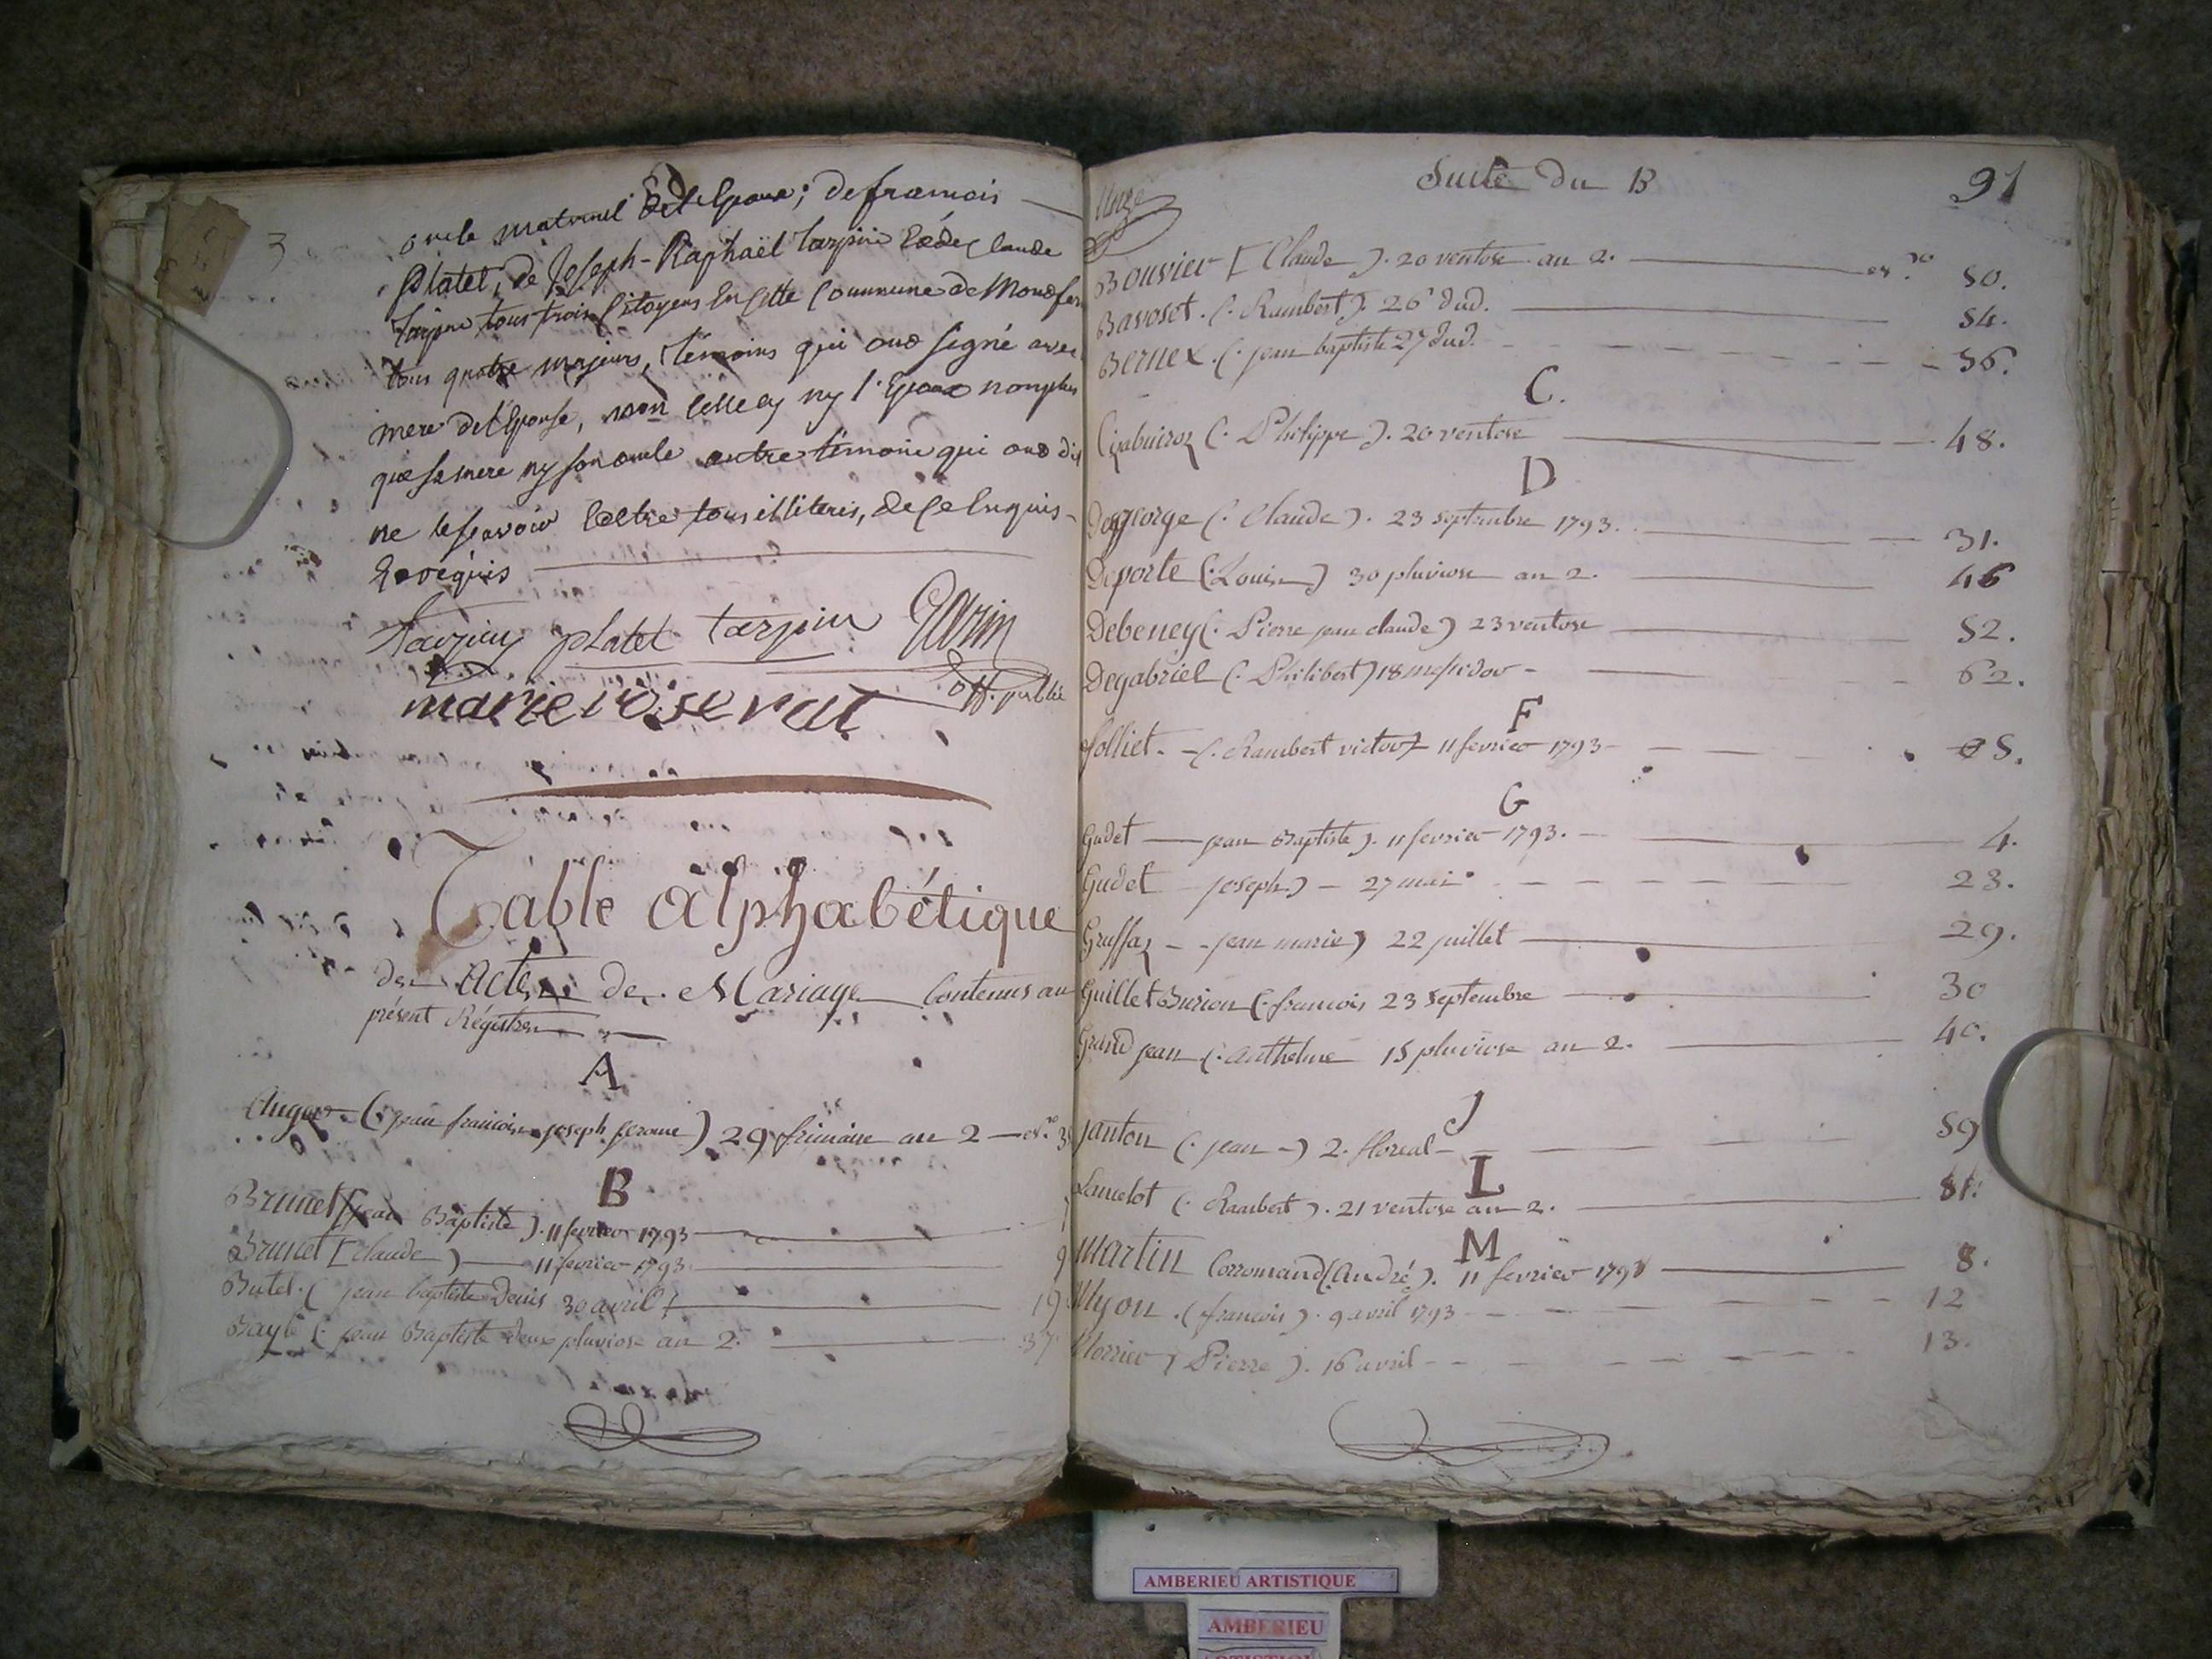 3
oncle maternel de l'Epoux; de francois
Platet, de Joseph-Raphaël Tarpin & de Claude
Tarpin tous trois Citoyens en cette Commune de Montfer
tous quatre majeurs, témoins qui ont signé avec
mere de l'Epouse, non celle cy ny l'Epoux non plus
que sa mere ny son oncle autre témoin qui ont dit
ne le scavoir & etre tous illiterés, de ce enquis
& requis
Tarpin platet tarpin
off. public
marie roseval
Table alphabétique
des Actes de Mariage Contenus au
présent Régistre
A
Auger (: jean francois joseph jerome) 29 frimaire an 2 — N.ro 3
B
Brunet (jean Baptiste). 11 fevrier 1793
Brunet [Claude) 11 fevrier 1793 9
Butel. (jean baptiste Denis 30 avril 19
Bayle (: jean Baptiste deux pluviose an 2. 37
Suite du B
91
Bouvier [Claude). 20 ventose an 2. N.ro 50.
Bavoset. (: Rambert). 26 dud. 54.
Bernex. (: jean baptiste 27 dud. 56.
C.
(: Philippe). 20 ventose 48.
D
Degeorge (: Claude). 23 septembre 1793. 31.
Deporte (: Louis) 30 pluviose an 2. 46
Debeney (: Pierre jean claude) 23 ventose 52.
Degabriel (: Philibert) 18 messidor 62.
F
folliet (: Rambert victor) 11 fevrier 1793 5.
G
Gudet jean Baptiste). 11 fevrier 1793. 4.
Gudet joseph) 27 mai 23.
Gruffaz jean marie) 22 juillet 29.
Guillet Burion (: francois 23 septembre 30
Grand jean (: Anthelme 15 pluviose an 2. 40.
J
janton (: jean) 2. floreal 59
L
Lancelot (: Rambert). 21 ventose an 2. 51.
M
Martin Corromand (: André). 11 fevrier 1793 8.
Myon. (francois). 9 avril 1793 12
(Pierre). 16 avril 13.
AMBERIEU ARTISTIQUE
AMBERIEU
ARTISTIQUE